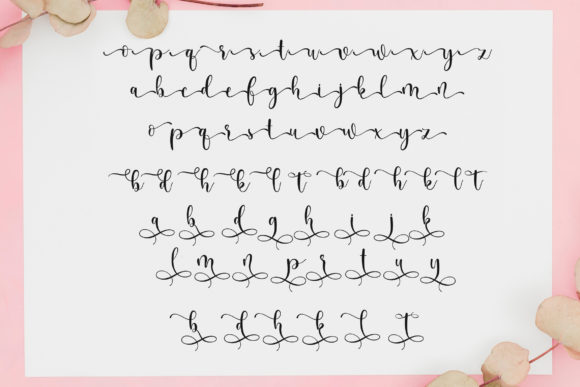 o p q r s t u v w x y z
a b c d e f g h i j k l m n
o p q r s t u v w x y z
b d h k l t b d h k l t
a b d g h i j k
l m n p r t u y
b d h k l t